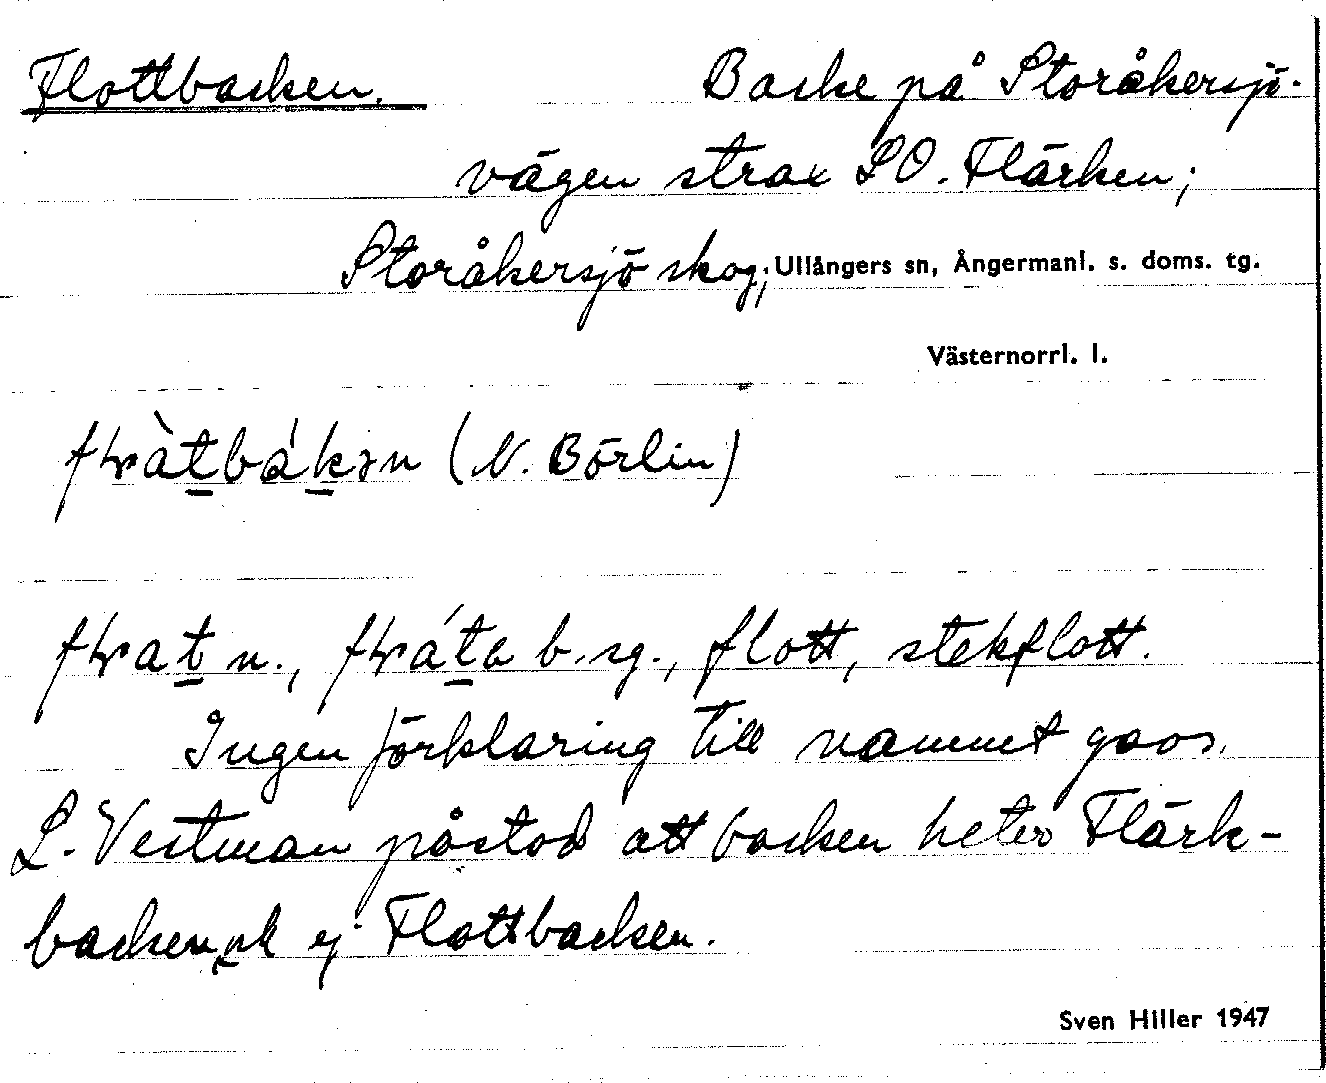 Flottbacken. Backe på Storåkersjö-
vägen strax SO. Flärken;
Storåkersjö skog; Ullångers sn, Ångermanl. s. doms. tg.
Västernorrl. l.
(N. Börlin)
n., b. sg., flott, stekflott.
Ingen förklaring till namnet gavs.
L. Vestman påstod att backen heter Flärk-
backen, ok ej Flottbacken.
Sven Hiller 1947